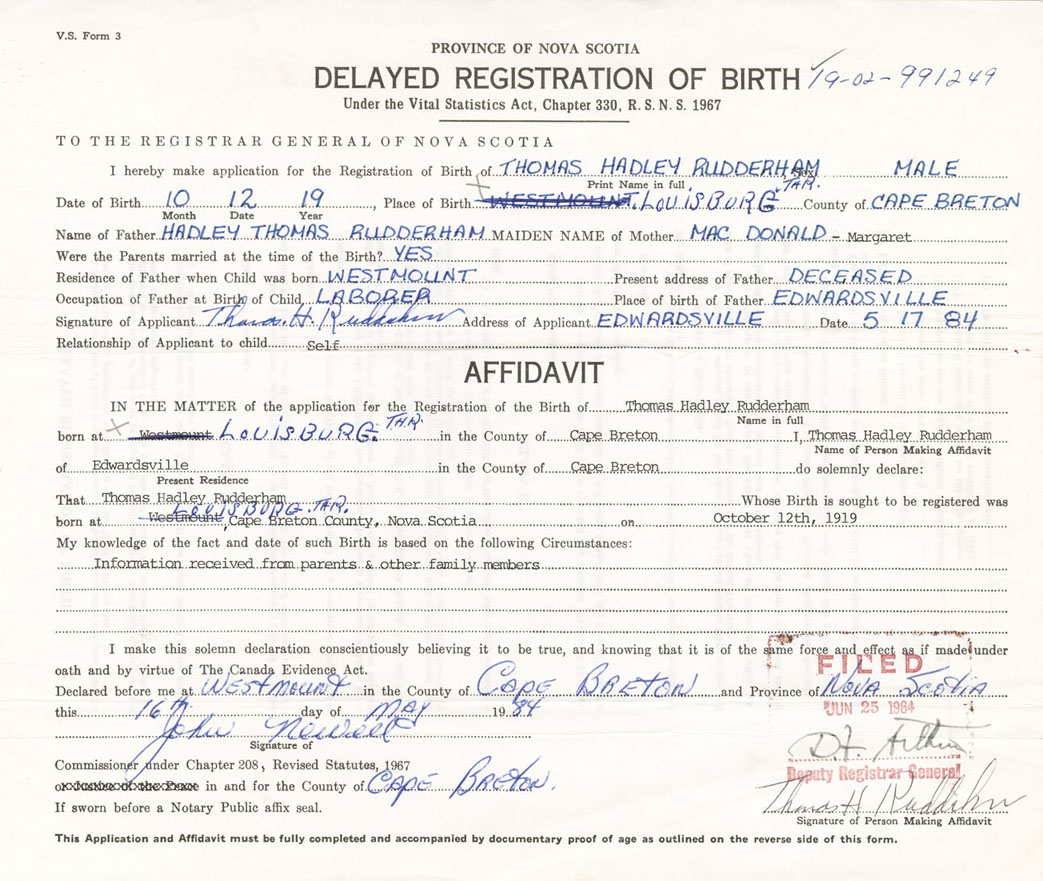 V.S. Form 3
PROVINCE OF NOVA SCOTIA
DELAYED REGISTRATION OF BIRTH 19-02-991249
Under the Vital Statistics Act, Chapter 330, R.S.N.S. 1967
TO THE REGISTRAR GENERAL OF NOVA SCOTIA
I hereby make application for the Registration of Birth of THOMAS HADLEY RUDDERHAM, Sex MALE
Print Name in full
Date of Birth 10 12 19, Place of Birth WESTMOUNT. LOUISBURG T.H.R. County of CAPE BRETON
Month Date Year
Name of Father HADLEY THOMAS RUDDERHAM MAIDEN NAME of Mother MAC DONALD - Margaret
Were the Parents married at the time of the Birth? YES
Residence of Father when Child was born WESTMOUNT Present address of Father DECEASED
Occupation of Father at Birth of Child LABORER Place of birth of Father EDWARDSVILLE
Signature of Applicant Thomas H. Rudderham Address of Applicant EDWARDSVILLE Date 5 17 84
Relationship of Applicant to child Self
AFFIDAVIT
IN THE MATTER of the application for the Registration of the Birth of Thomas Hadley Rudderham
Name in full
born at Westmount LOUISBURG. T.H.R. in the County of Cape Breton I, Thomas Hadley Rudderham
Name of Person Making Affidavit
of Edwardsville in the County of Cape Breton do solemnly declare:
Present Residence
That Thomas Hadley Rudderham Whose Birth is sought to be registered was
LOUISBURG. T.H.R.
born at Westmount, Cape Breton County, Nova Scotia on October 12th, 1919
My knowledge of the fact and date of such Birth is based on the following Circumstances:
Information received from parents & other family members
I make this solemn declaration conscientiously believing it to be true, and knowing that it is of the same force and effect as if made under
oath and by virtue of The Canada Evidence Act.
FILED
Declared before me at WESTMOUNT in the County of CAPE BRETON and Province of NOVA SCOTIA
this 16th day of MAY 1984
JUN 25 1984
John Newell
Signature of
Commissioner under Chapter 208, Revised Statutes, 1967
Deputy Registrar General
or Justice of the Peace in and for the County of CAPE BRETON.
Thomas H Rudderham
If sworn before a Notary Public affix seal.
Signature of Person Making Affidavit
This Application and Affidavit must be fully completed and accompanied by documentary proof of age as outlined on the reverse side of this form.